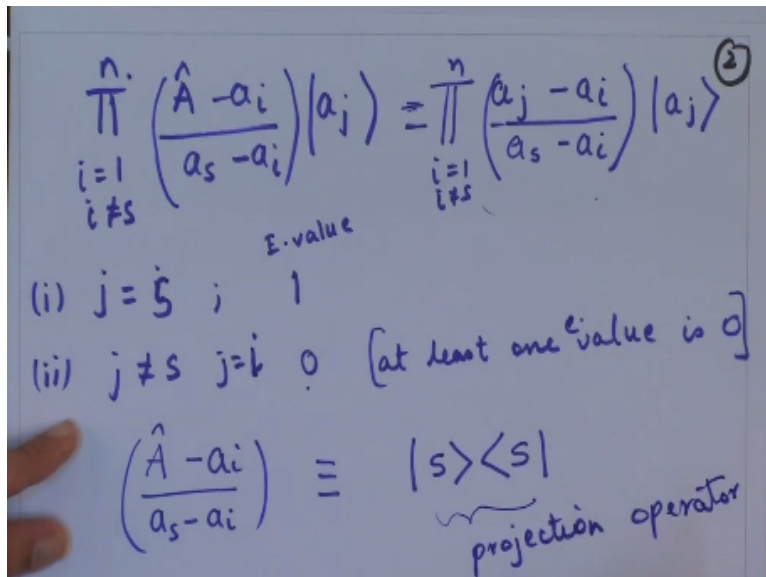 ②
n
∏ (Â - aᵢ / aₛ - aᵢ) |aⱼ⟩ = n ∏ (aⱼ - aᵢ / aₛ - aᵢ) |aⱼ⟩
i=1 i=1
i≠s i≠s
E.value
(i) j = s ; 1
(ii) j ≠ s j=i 0 [at least one e.value is 0]
(Â - aᵢ / aₛ - aᵢ) ≡ |s><s|
projection operator